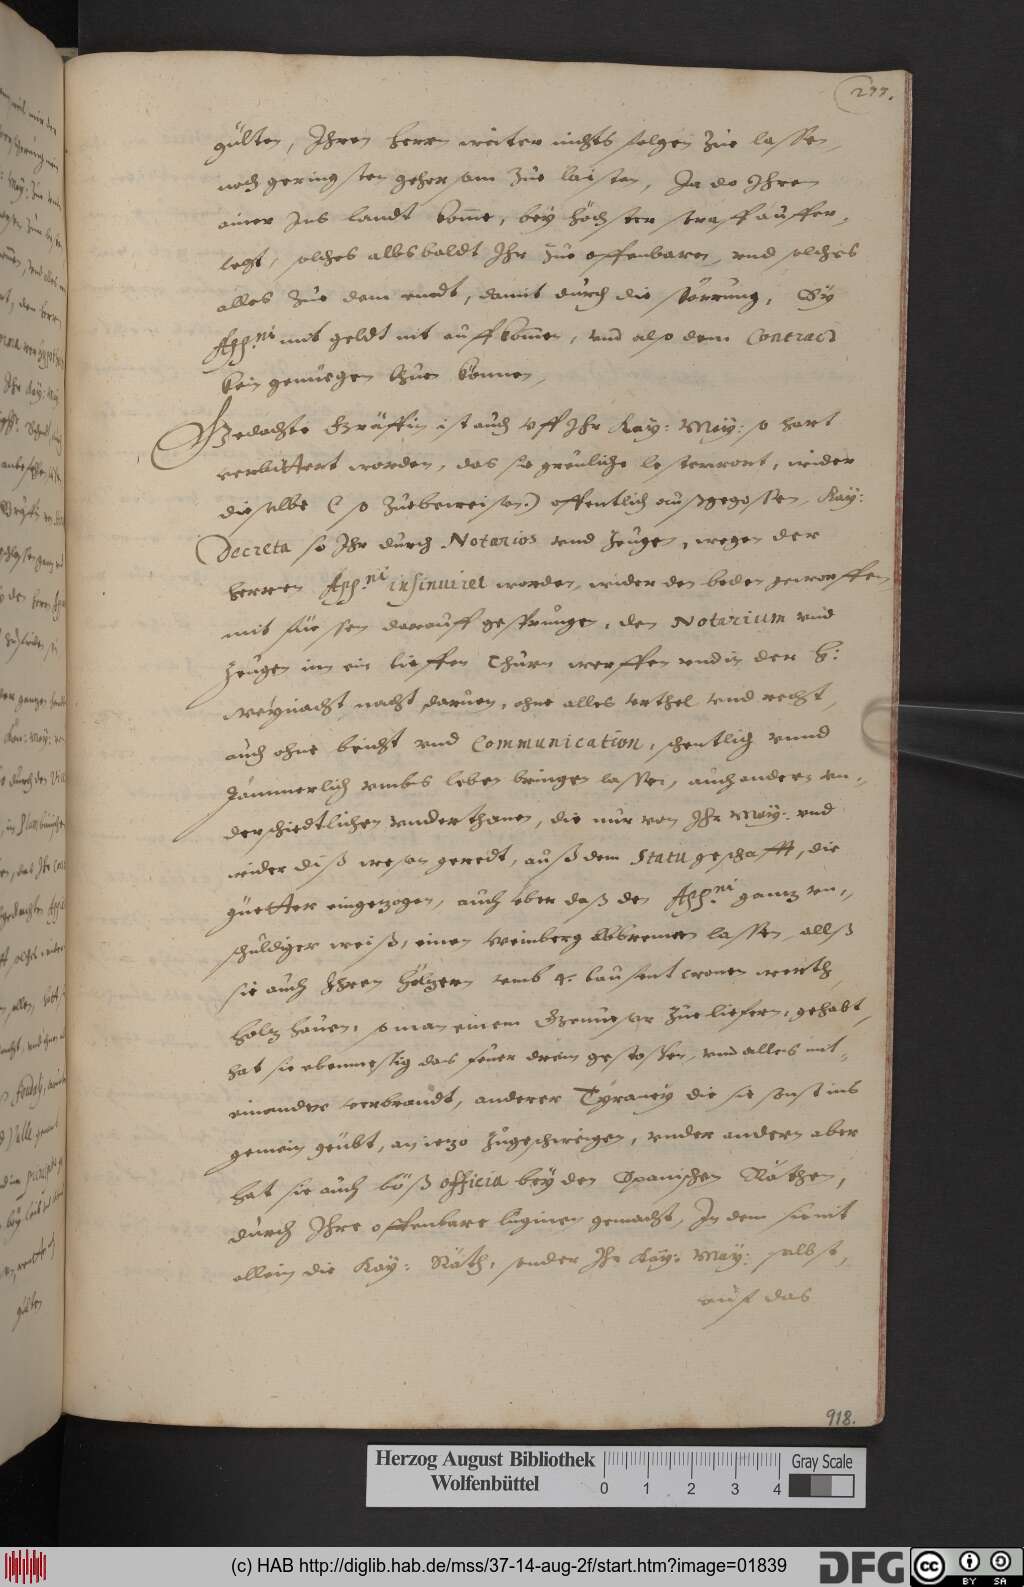 277.
gülten, Ihren herrn weiter nichts folgen zue lassen,
noch geringsten gehorsam zue laisten, Ja do Ihren
ainer Ins landt komme, bey höchster straff aufferlegt,
solches alsbaldt Ihr zue offenbaren, vnd solches
alles zue dem endt, damit durch die störrung, Sy
App.ni mit geldt nit auffkommen, vnd also dem Contract
kein genuegen thuen können,
Gedachte Gräffin ist auch vff Ihr Kay: May: so hart
verbittert worden, das sie greuliche lesterwort, wider
dieselbe (so zuebeweisen) offentlich außgegossen, Kay:
Decreta so Ihr durch Notarios vnd Zeugen, wegen der
herren App.ni insinuiret worden, wider den boden geworffen,
mit füessen darauff gesprungen, den Notarium vnd
Zeugen inn ein tieffen Thurn werffen vnd in der H:
Weynacht nacht daruon, ohne alles vrthel vnd recht,
auch ohne beicht vnd Communication, schentlich vnnd
Jämmerlich vmbs leben bringen lassen, auch andern vn-
derschiedtlichen vnderthanen, die nur von Ihr May: vnd
wider diß wesen geredt, auß dem Statu geschafft, die
güetter eingezogen, auch über daß den App.ni gantz vn-
schuldiger weiß, einen Weinberg abbrennen lassen, allß
sie auch Ihren höltzern vmb 4. tausent cronen werth
holtz hauen, so man einem zue liefern, gehabt,
hat sie ebenmessig das feuer drein gestossen, vnd alles mit-
einander verbrandt, anderer Tyraney die sie sonst ins
gemein geübt, an iezo zugeschweigen, vnder andern aber
hat sie auch böß officia bey den Spanischen Räthen,
durch Ihre offenbare luginen gemacht, In dem sie nit
allein die Kay: Räth, sonder Ihr Kay: May: selbst,
auf das
918.
Herzog August Bibliothek
Wolfenbüttel
0 1 2 3 4
Gray Scale
(c) HAB http://diglib.hab.de/mss/37-14-aug-2f/start.htm?image=01839
DFG
cc BY SA